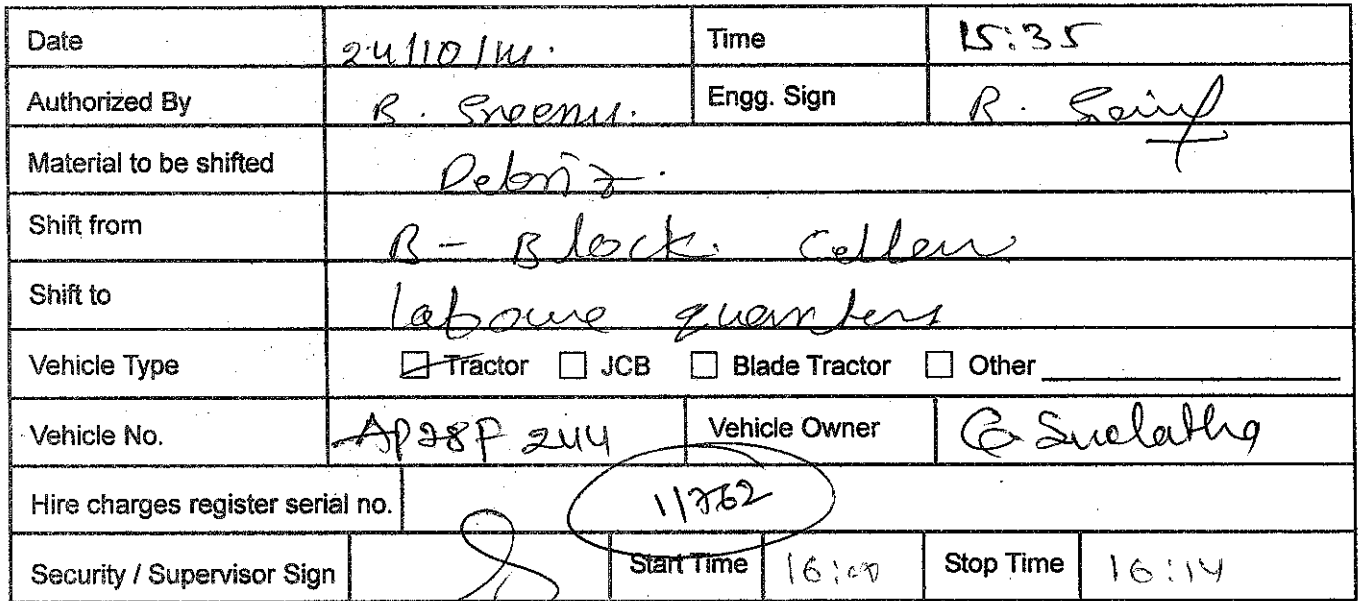 Date 24/10/14. Time 15:35
Authorized By B. Sreenu. Engg. Sign
Material to be shifted Debriz.
Shift from B - Block. Celler
Shift to laboure quarters
Vehicle Type Tractor JCB Blade Tractor Other
Vehicle No. AP28P 244 Vehicle Owner G Sudatha
Hire charges register serial no. 11762
Security / Supervisor Sign Start Time 16:00 Stop Time 16:14